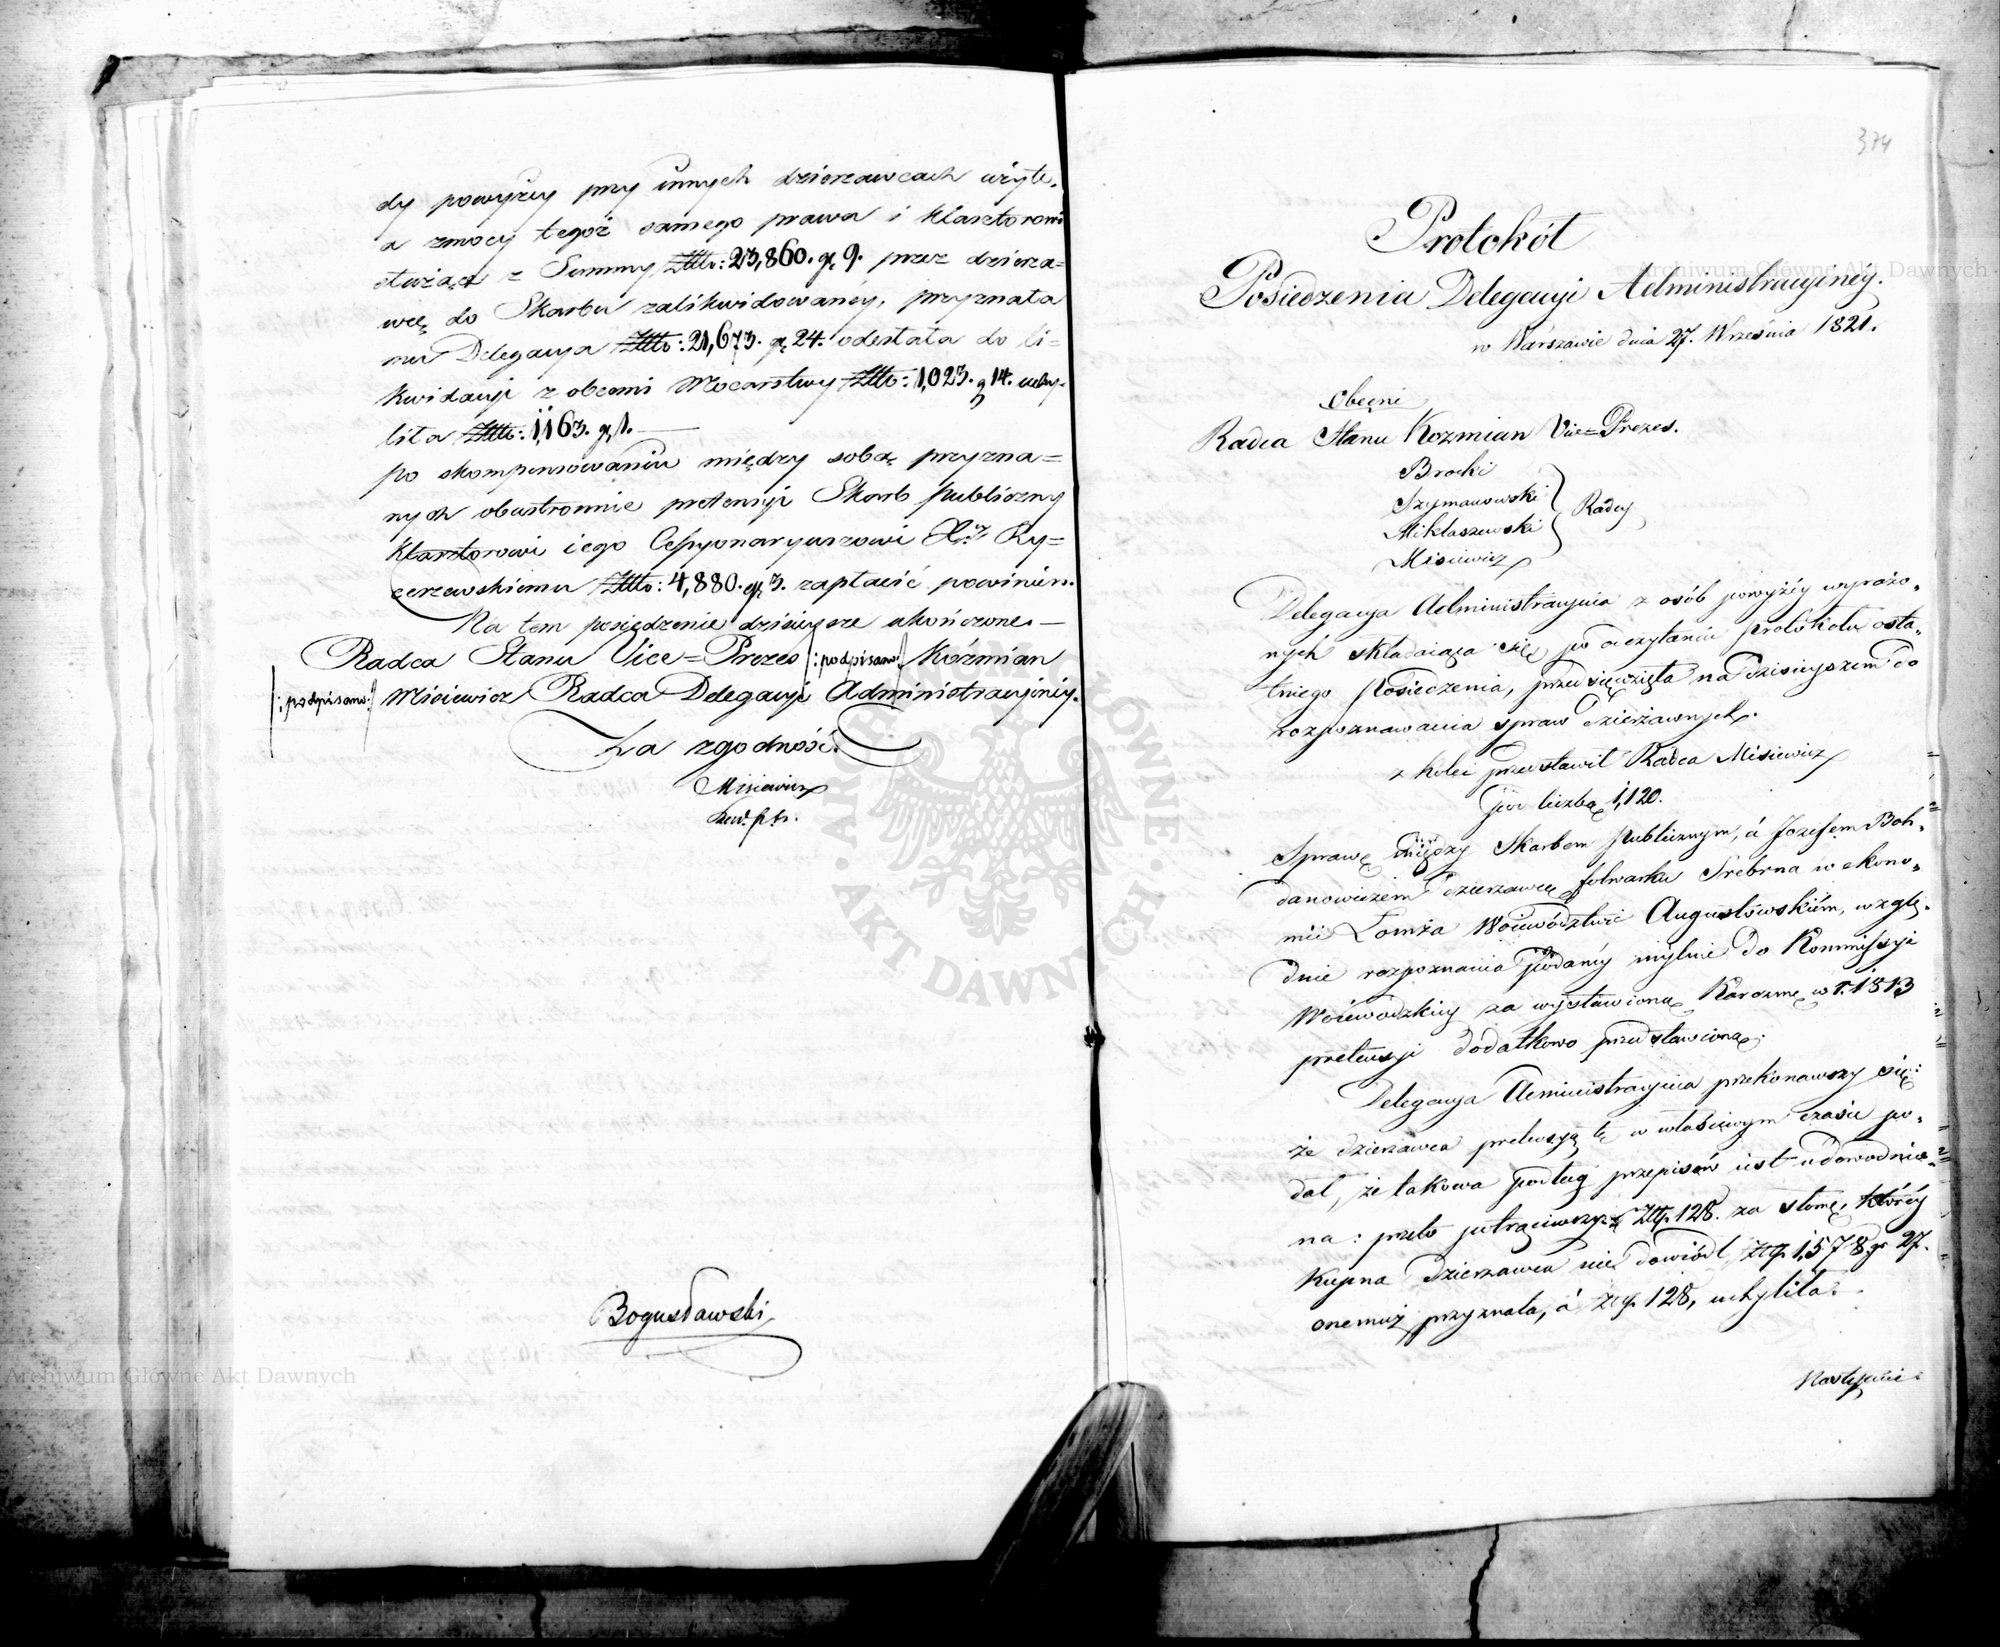 dy powyżey przy innych dzierzawcach użyte.
a zmocy tegoż samego prawa i klasztorowi
służąca z Summy Złtt: 23,860. gr. 9. przez dzierza=
wcę do Skarbu zalikwidowanéy, przyznała
mu Delegacya Złtt: 21,673. gr. 24. odesłała do li=
kwidacyi z obcemi Mocarstwy Złtt: 1,023. g 14. uchy=
liła Złtt: 1,163. gr. 1.
po skompensowaniu między sobą przyzna=
nych obustronnie pretensyi Skarb publiczny
Klasztorowi i ego Cessyonaryuszowi Ry=
cerzewskiemu Złtt: 4,880. gr. 3. zapłacić powinien.
Na tem posiędzenie dzisieysze ukończone.
Radca Stanu Vice=Prezes /:podpisano:/ Koźmian
/:podpisano:/ Misiewicz Radca Delegacyi Administracyiney.
Za zgodność.
Misiewicz
Bogusławski
374
Protokół
Posiedzenia Delegacyi Administracyinéy.
w Warszawie dnia 27. Września 1821.
Obecni
Radca Stanu Kozmian Vice=Prezes.
Brocki
Szymanowski
Mikłaszewski
Misiewicz
Radcy
Delegacya Administracyina z osób powyżéy wyrażo=
nych składaiąca się, po odczytaniu protokołu osta=
tniego Posiedzenia, przedsięwzięła na dzisieyszem do
rozpoznawania spraw dzierżawnych.
z kolei przedstawił Radca Misiewicz
pod liczbą 1,120.
Sprawę między Skarbem publicznym, á Jozefem Boh=
danowiczem dzierzawcą folwarku Srebrna w ekono=
mii Łomża Woiewództwie Augustowskim, wzglę=
dnie rozpoznania podanéy mylnie do Kommissyi
Woiewodzkiey za wystawioną Karczmę w r. 1813
pretensyi dodatkowo przedstawioną.
Delegacya Administracyina przekonawszy się:
że dzierzawca pretensyą tę w właściwym czasie po=
dał, że takowa podług przepisów iest udowodnio=
na: przeto potrąciwszy z Złtp. 128. za słomę, któréy
kupna Dzierzawca nie dowiódł, złtp. 1,578 gr 27.
onemuż przyznała, á złtp. 128, uchyliła.
Następnie
Archiwum Główne Akt Dawnych
Archiwum Główne Akt Dawnych
ARCHIWUM GŁÓWNE AKT DAWNYCH